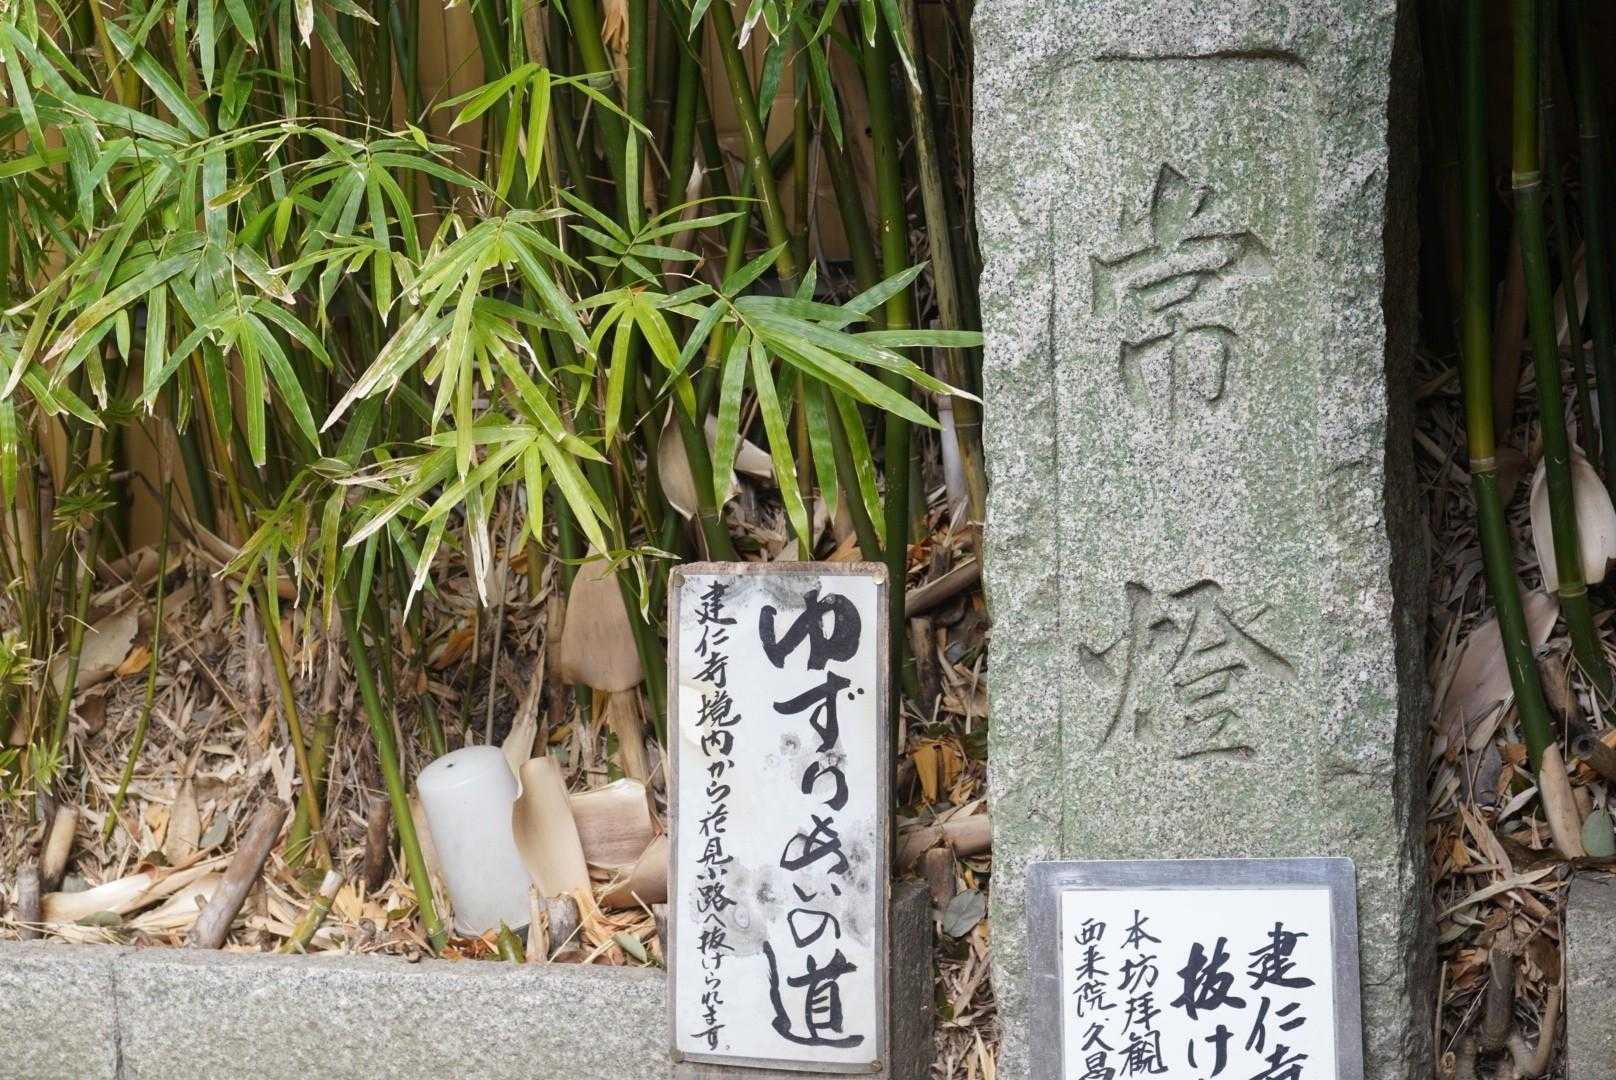 常燈
ゆずりあいの道
建仁寺境内から花見小路へ抜けられます。
建仁寺
抜け
本坊拝観
西来院・久昌